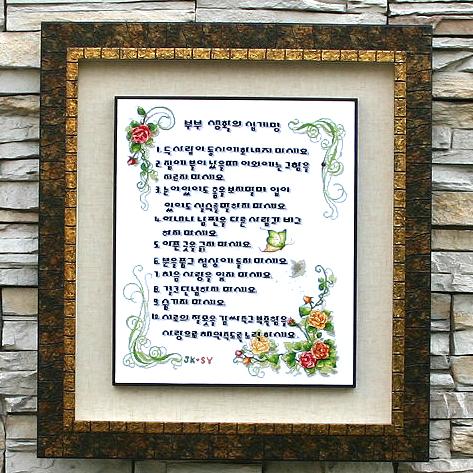 부부 생활의 십계명
1. 두 사람이 동시에 화내지 마세요.
2. 집에 불이 났을때 이외에는 고함을
지르지 마세요.
3. 눈이 있어도 흠을 보지말며 입이
있어도 실수를 말하지 마세요.
4. 아내나 남편을 다른 사람과 비교
하지 마세요.
5. 아픈 곳을 긁지 마세요.
6. 분을 품고 침상에 들지 마세요.
7. 처음 사랑을 잊지 마세요.
8. 결코 단념하지 마세요.
9. 숨기지 마세요.
10. 서로의 잘못을 감싸주고 부족함을
사랑으로 채워주도록 노력하세요.
JK♥SY